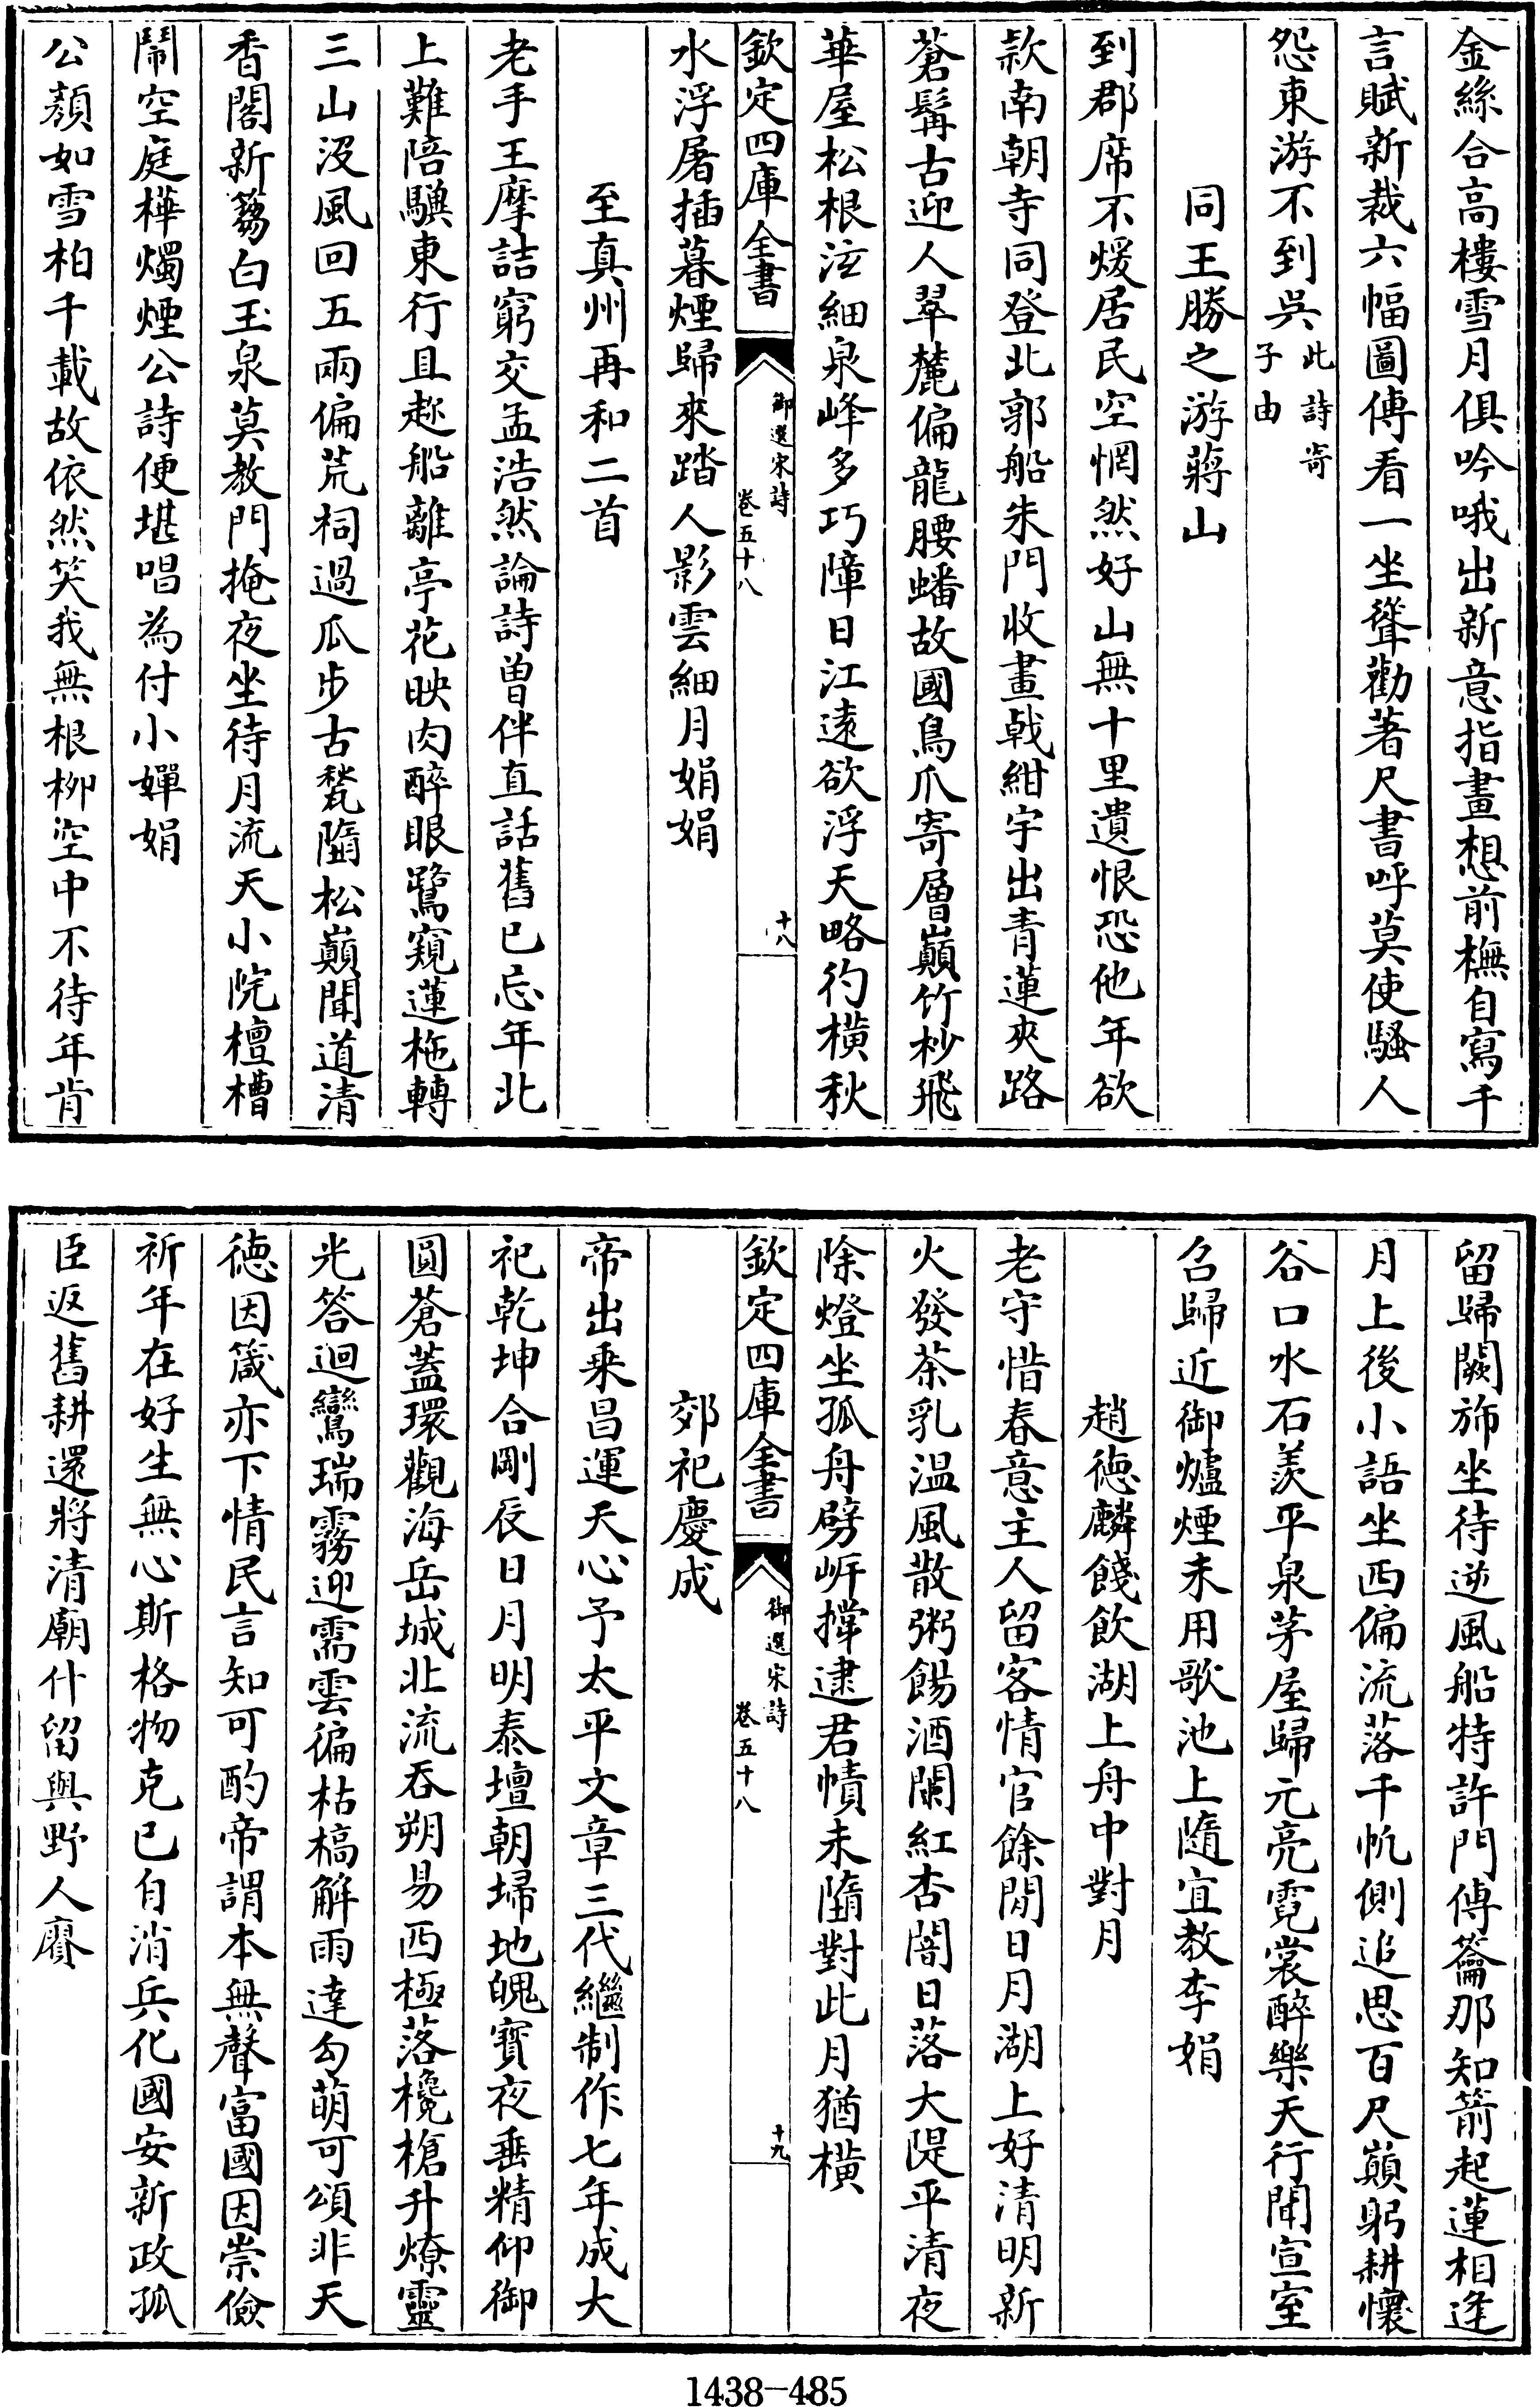 金絲合高樓雪月俱吟哦出新意指畫想前橅自寫千
言賦新裁六幅圖傳看一坐聳勸著尺書呼莫使騷人
怨東游不到吳此詩寄子由
同王勝之游蔣山
到郡席不煖居民空惘然好山無十里遺恨恐他年欲
款南朝寺同登北郭船朱門收畫戟紺宇出青蓮夾路
蒼髯古迎人翠麓偏龍腰蟠故國鳥爪寄層巔竹杪飛
華屋松根泫細泉峰多巧障日江遠欲浮天略彴橫秋
欽定四庫全書
御選宋詩
卷五十八
十八
水浮屠插暮煙歸來踏人影雲細月娟娟
至真州再和二首
老手王摩詰窮交孟浩然論詩曾伴直話舊已忘年北
上難陪驥東行且趂船離亭花映肉醉眼鷺窺蓮柂轉
三山沒風回五兩偏荒祠過瓜步古甃墮松巔聞道清
香閣新篘白玉泉莫教門掩夜坐待月流天小院檀槽
鬧空庭樺燭煙公詩便堪唱為付小嬋娟
公顏如雪柏千載故依然笑我無根柳空中不待年肯
留歸闕斾坐待逆風船特許門傳籥那知箭起蓮相逢
月上後小語坐西偏流落千帆側追思百尺巔躬耕懷
谷口水石羨平泉茅屋歸元亮霓裳醉樂天行聞宣室
召歸近御爐煙未用歌池上隨宜教李娟
趙德麟餞飲湖上舟中對月
老守惜春意主人留客情官餘閒日月湖上好清明新
火發茶乳温風散粥餳酒闌紅杏闇日落大隄平清夜
除燈坐孤舟劈岍撐逮君幘未墮對此月猶橫
欽定四庫全書
御選宋詩
卷五十八
十九
郊祀慶成
帝出乗昌運天心予太平文章三代繼制作七年成大
祀乾坤合剛辰日月明泰壇朝埽地魄寶夜垂精仰御
圓蒼蓋環觀海岳城北流吞朔易西極落欃槍升燎靈
光答迴鸞瑞霧迎需雲偏枯槁解雨達勾萌可頌非天
德因箴亦下情民言知可酌帝謂本無聲富國因崇儉
祈年在好生無心斯格物克己自消兵化國安新政孤
臣返舊耕還將清廟什留與野人賡
1438-485